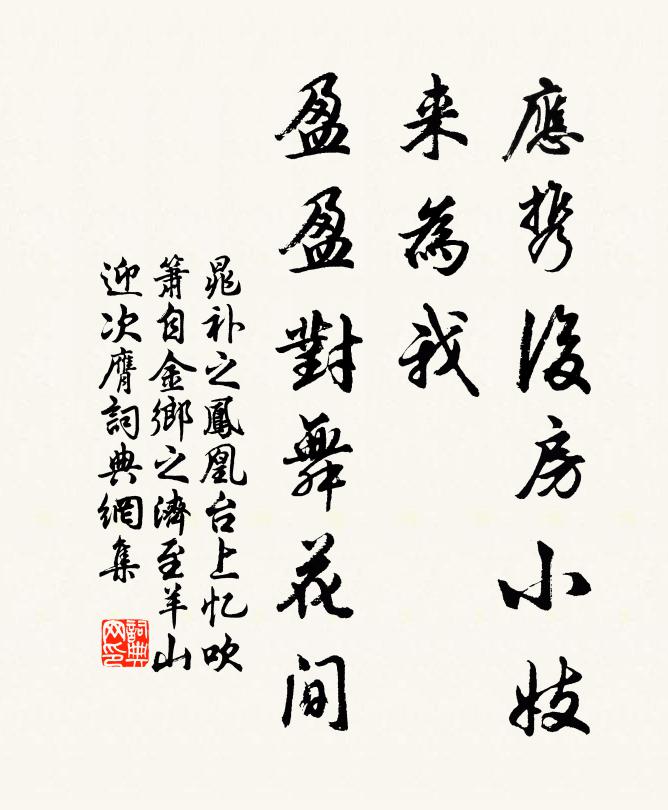 應携後房小妓
来為我
盈盈對舞花间
晁补之鳳凰台上忆吹
簫自金鄉之濟至羊山
迎次膺詞典網集
詞典网印